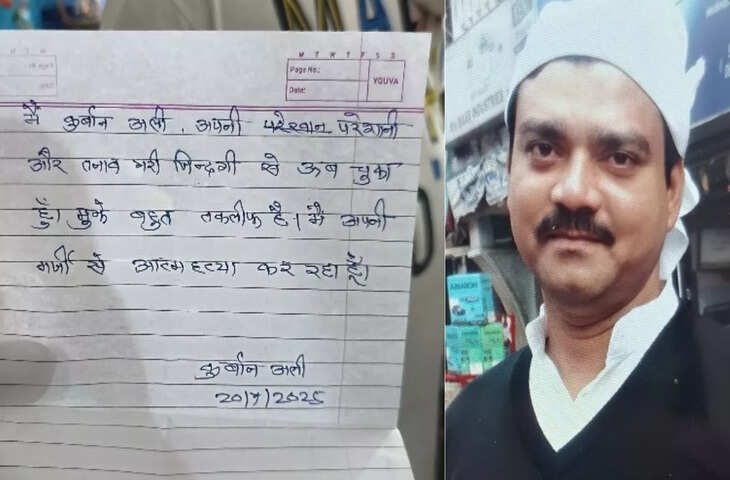 M T W T F S S
Page No.:
Date:
YOUVA
मैं कुर्बान अली, अपनी परेशान परेशानी
और तनाव भरी जिन्दगी से ऊब चुका
हूँ। मुझे बहुत तकलीफ है। मैं अपनी
मर्जी से आत्महत्या कर रहा हूँ।
कुर्बान अली
20/7/2025
AMARON